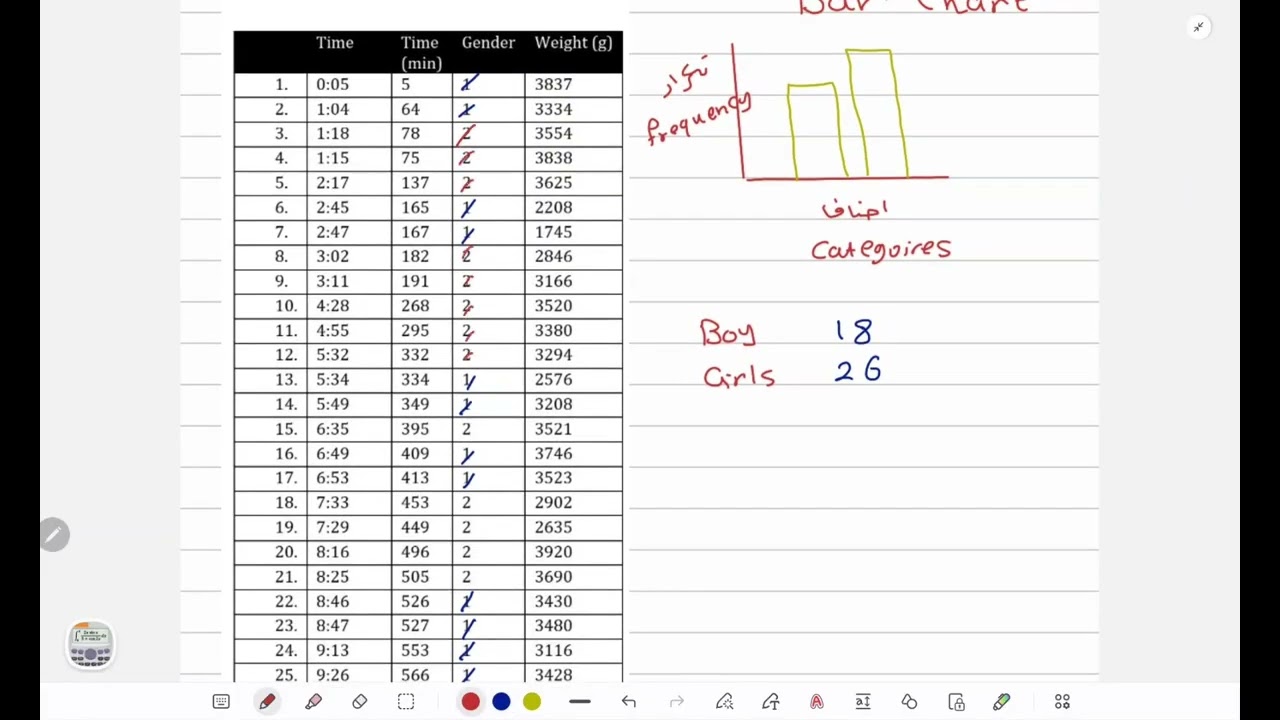 Bar Chart
Time Time (min) Gender Weight (g)
1. 0:05 5 1 3837
2. 1:04 64 1 3334
3. 1:18 78 2 3554
4. 1:15 75 2 3838
5. 2:17 137 2 3625
6. 2:45 165 1 2208
7. 2:47 167 1 1745
8. 3:02 182 2 2846
9. 3:11 191 2 3166
10. 4:28 268 2 3520
11. 4:55 295 2 3380
12. 5:32 332 2 3294
13. 5:34 334 1 2576
14. 5:49 349 1 3208
15. 6:35 395 2 3521
16. 6:49 409 1 3746
17. 6:53 413 1 3523
18. 7:33 453 2 2902
19. 7:29 449 2 2635
20. 8:16 496 2 3920
21. 8:25 505 2 3690
22. 8:46 526 1 3430
23. 8:47 527 1 3480
24. 9:13 553 1 3116
25. 9:26 566 1 3428
تكرار
frequency
اصناف
Categoires
Boy 18
Girls 26